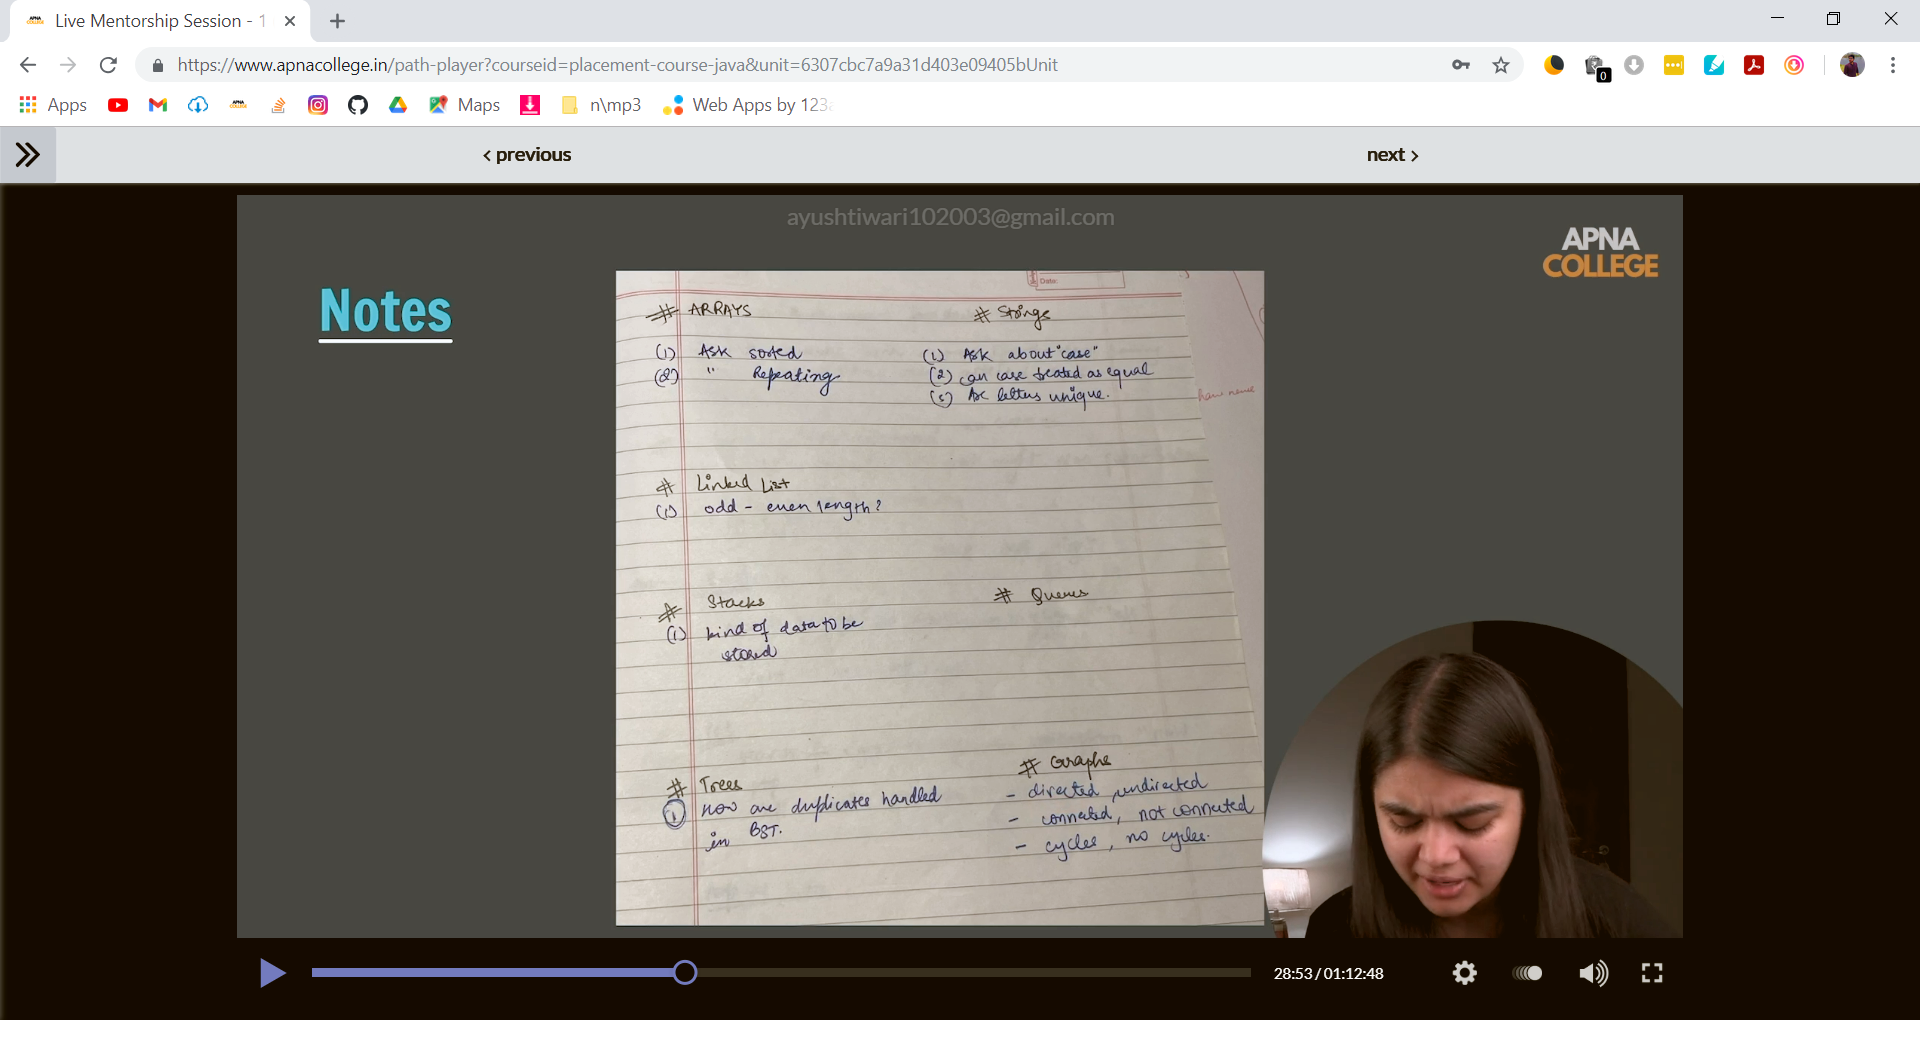 Live Mentorship Session - 1
https://www.apnacollege.in/path-player?courseid=placement-course-java&unit=6307cbc7a9a31d403e09405bUnit
0
Apps
Maps
n\mp3
Web Apps by 123
< previous
next >
ayushtiwari102003@gmail.com
APNA
COLLEGE
Notes
Date:
# ARRAYS
(1) Ask sorted
(2) " Repeating
# Strings
(1) Ask about "case"
(2) can case treated as equal
(3) Are letters unique.
# Linked List
(1) odd - even length?
# Stacks
(1) kind of data to be
stored
# Queues
# Trees
(1) How are duplicates handled
in BST.
# Graphs
- directed, undirected
- connected, not connected
- cycles, no cycles.
28:53 / 01:12:48